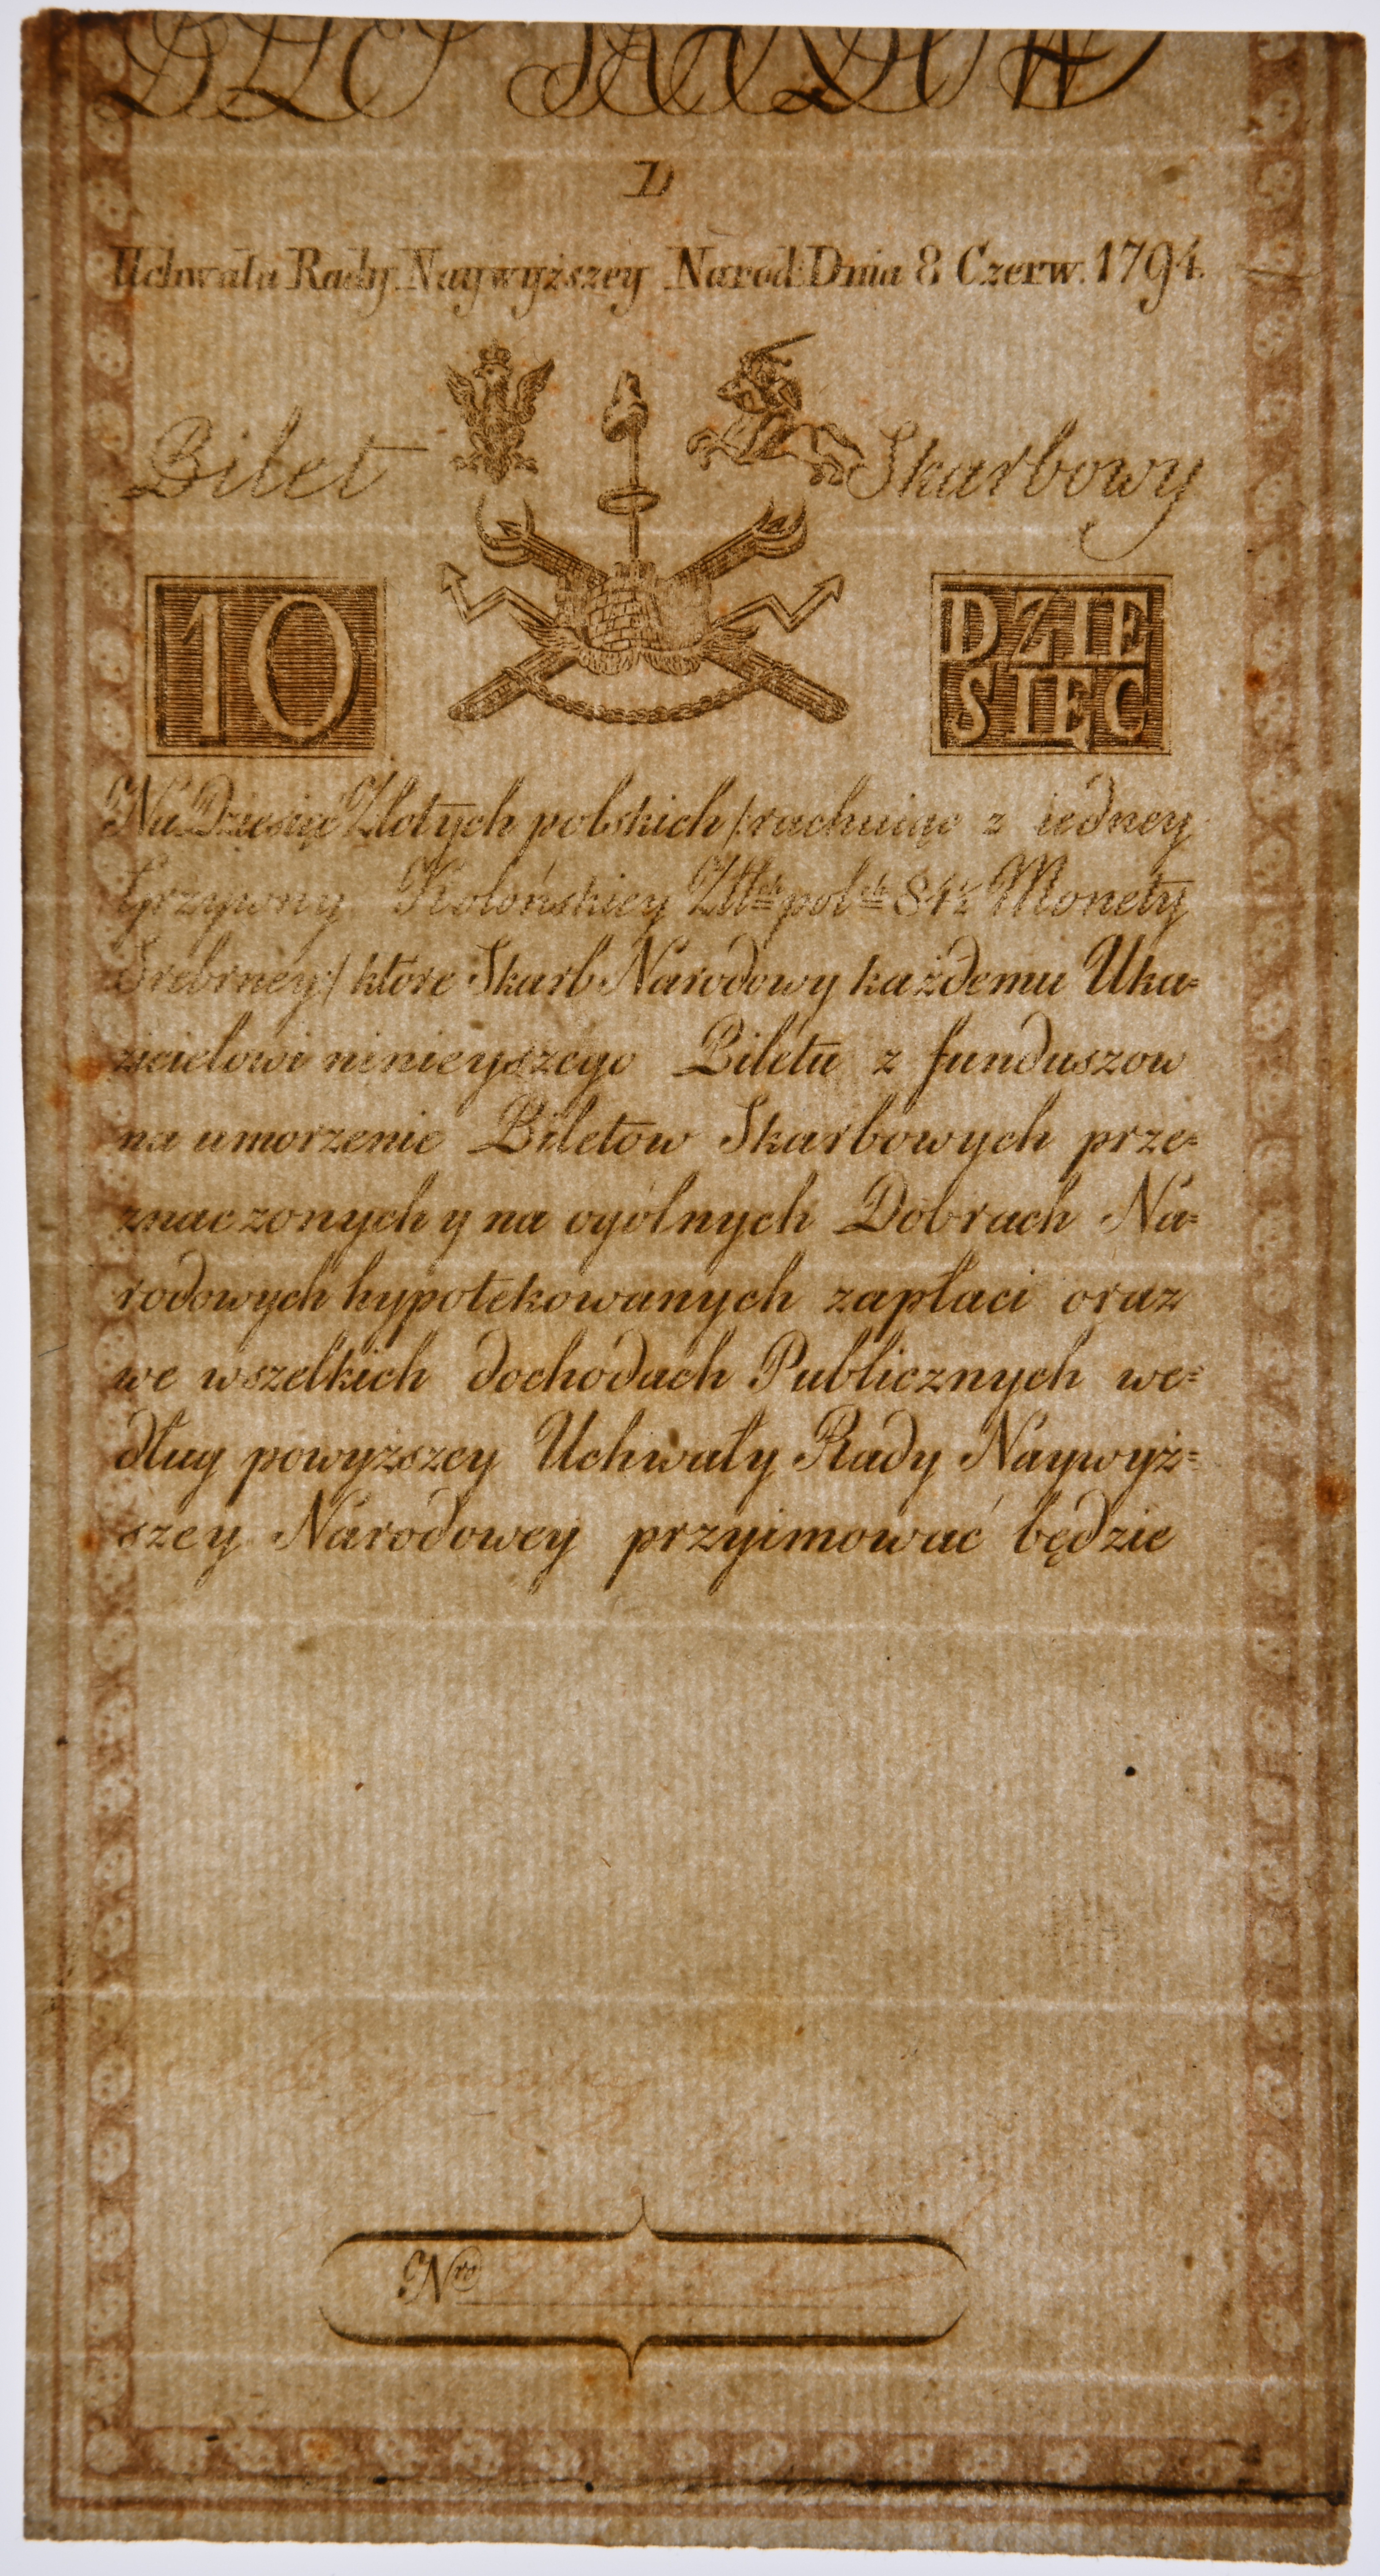 D
Uchwała Rady Naywyższey Narod: Dnia 8 Czerw. 1794.
Bilet Skarbowy
10 DZIE
SIĘĆ
Na Dziesięć Złotych polskich /:rachuiąc z iedney
Grzywny Kolońskiey Złłch polch 84½ Monety
Srebrney:/ które Skarb Narodowy każdemu Uka=
zicielowi ninieyszego Biletu z funduszow
na umorzenie Biletow Skarbowych prze=
znaczonych y na ogólnych Dobrach Na=
rodowych hypotekowanych zapłaci oraz
we wszelkich dochodach Publicznych we=
dług powyższey Uchwały Rady Naywyż=
szey Narodowey przyimować będzie
Nro